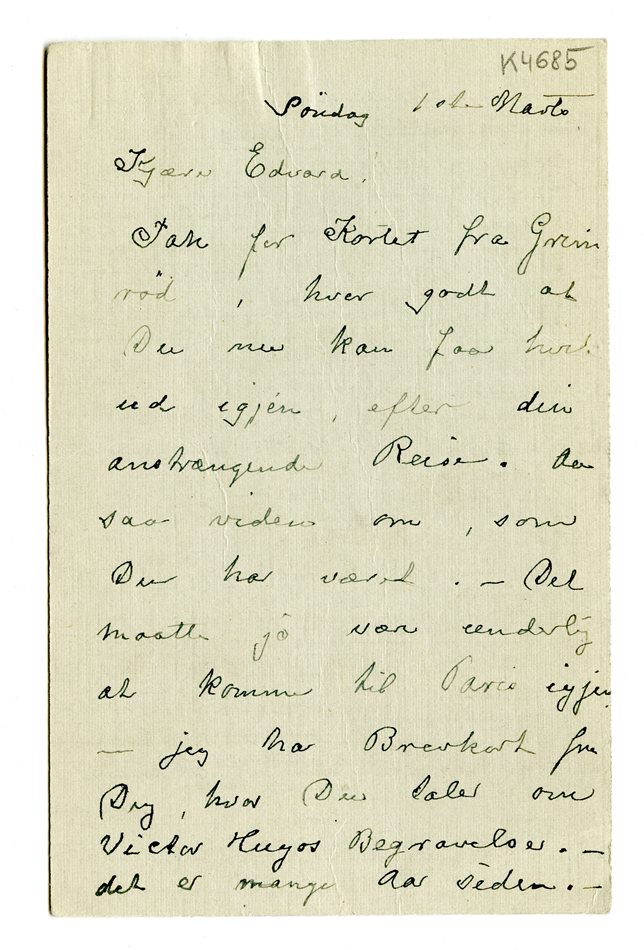 K4685
Söndag 1ste Marts
Kjære Edvard!
Tak for Kortet fra Grim
röd, hvor godt at
Du nu kan faa hvile
ud igjén, efter din
anstrængende Reise. Aa
saa viden om, som
Du har været. — Det
maatte jo være underlig
at komme til Paris igjen
— jeg har Brevkort fra
Dig, hvor Du taler om
Victor Hugos Begravelse. —
det er mange Aar siden. —